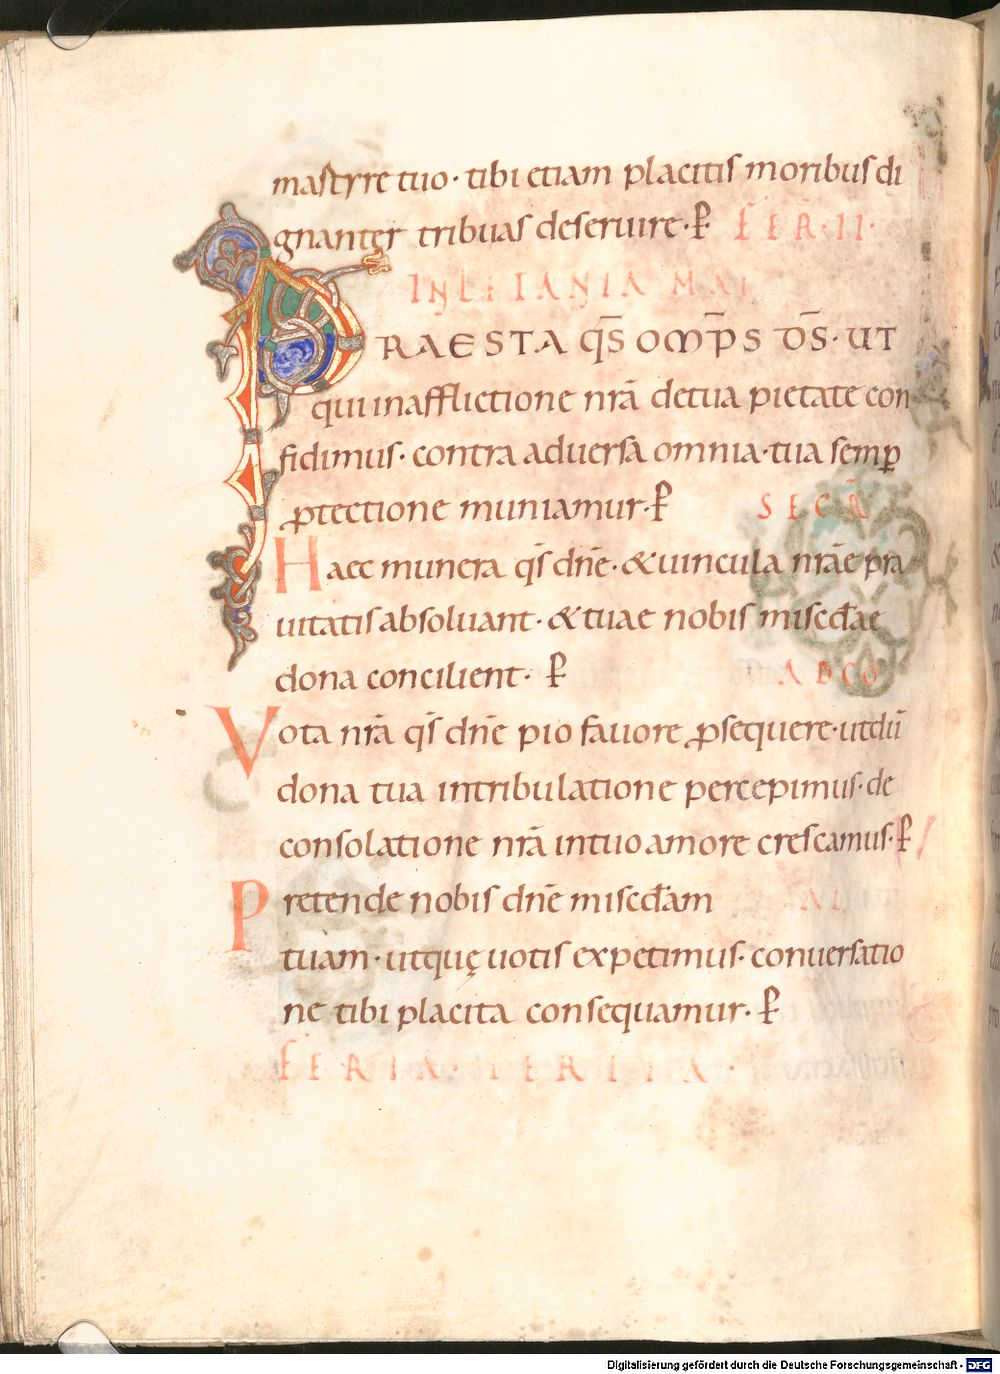 mastyre tuo· tibi etiam placitis moribus di
gnanter tribuas deseruire·ꝑ FER̃·II·
IN LETANIA MAI
PRAESTA qs̄ OMP̄S DS̄· UT
qui in afflictione nr̄a de tua pietate con
fidimus· contra aduersa omnia· tua semꝑ
ꝓtectione muniamur·ꝑ SECR̃
Haec munera qs̄ dn̄e· & uincula nr̄ae pra
uitatis absoluant· & tuae nobis miscd̄ae
dona concilient· ꝑ AD CO
Vota nr̄a qs̄ dn̄e pio fauore ꝓsequere· ut dū
dona tua in tribulatione percepimus· de
consolatione nr̄a in tuo amore crescamus·ꝑ
Pretende nobis dn̄e miscd̄am AL
tuam· ut quę uotis expetimus· conuersatio
ne tibi placita consequamur· ꝑ
FERIA· TERTIA·
Digitalisierung gefördert durch die Deutsche Forschungsgemeinschaft - DFG